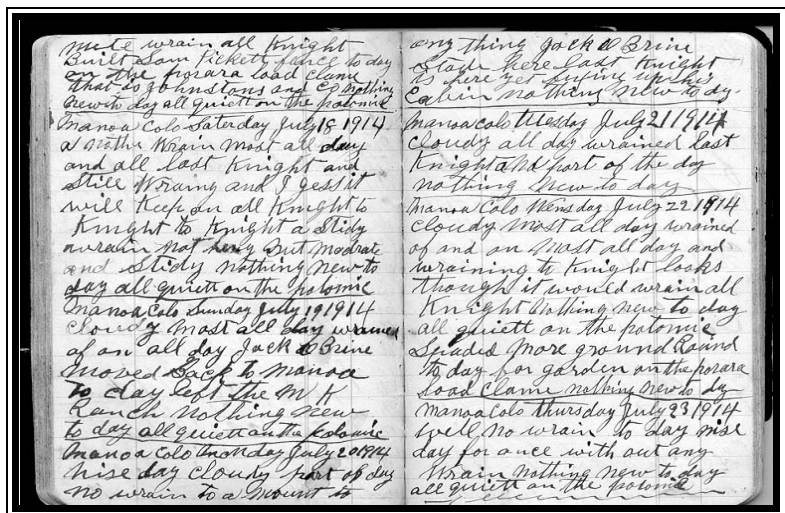 nute wrain all Knight
Built Sam Pickett fence to day
on the porara load clame
that is Johnstons and Co nothing
new to day all quiett on the potomic
Manoa Colo Saterday July 18 1914
a nother Wrain most all day
and all last Knight and
Still Wraing and I gest it
will Keep on all Knight to
Knight to Knight a Stidy
wrain not hevy But Modrate
and Stidy nothing new to
day all quiett on the potomic
Manoa Colo Sunday July 19 1914
Cloudy most all day wrained
of on all day Jack O Brine
moved Back to Manoa
to day left the M K
Ranch nothing new
to day all quiett on the potomic
Manoa Colo Monday July 20 1914
nise day cloudy part of day
no wrain to a mount to
any thing Jack O Brine
Staid here last Knight
is here yet fixing up his
Cabin nothing new to dy.
Manoa Colo tuesday July 21 1914
Cloudy all day wrained last
Knight and part of the dy
nothing new to day
Manoa Colo Wensday July 22 1914
Cloudy most all day wrained
of and on most all day and
wraining to Knight looks
though it would wrain all
Knight Nothing new to day
all quiett on the potomic
Spaded more ground Round
to day for garden on the porara
load clame nothing new to dy
Manoa Colo thursday July 23 1914
well no wrain to day nise
day for once with out any
Wrain nothing new to day
all quiett on the potomic